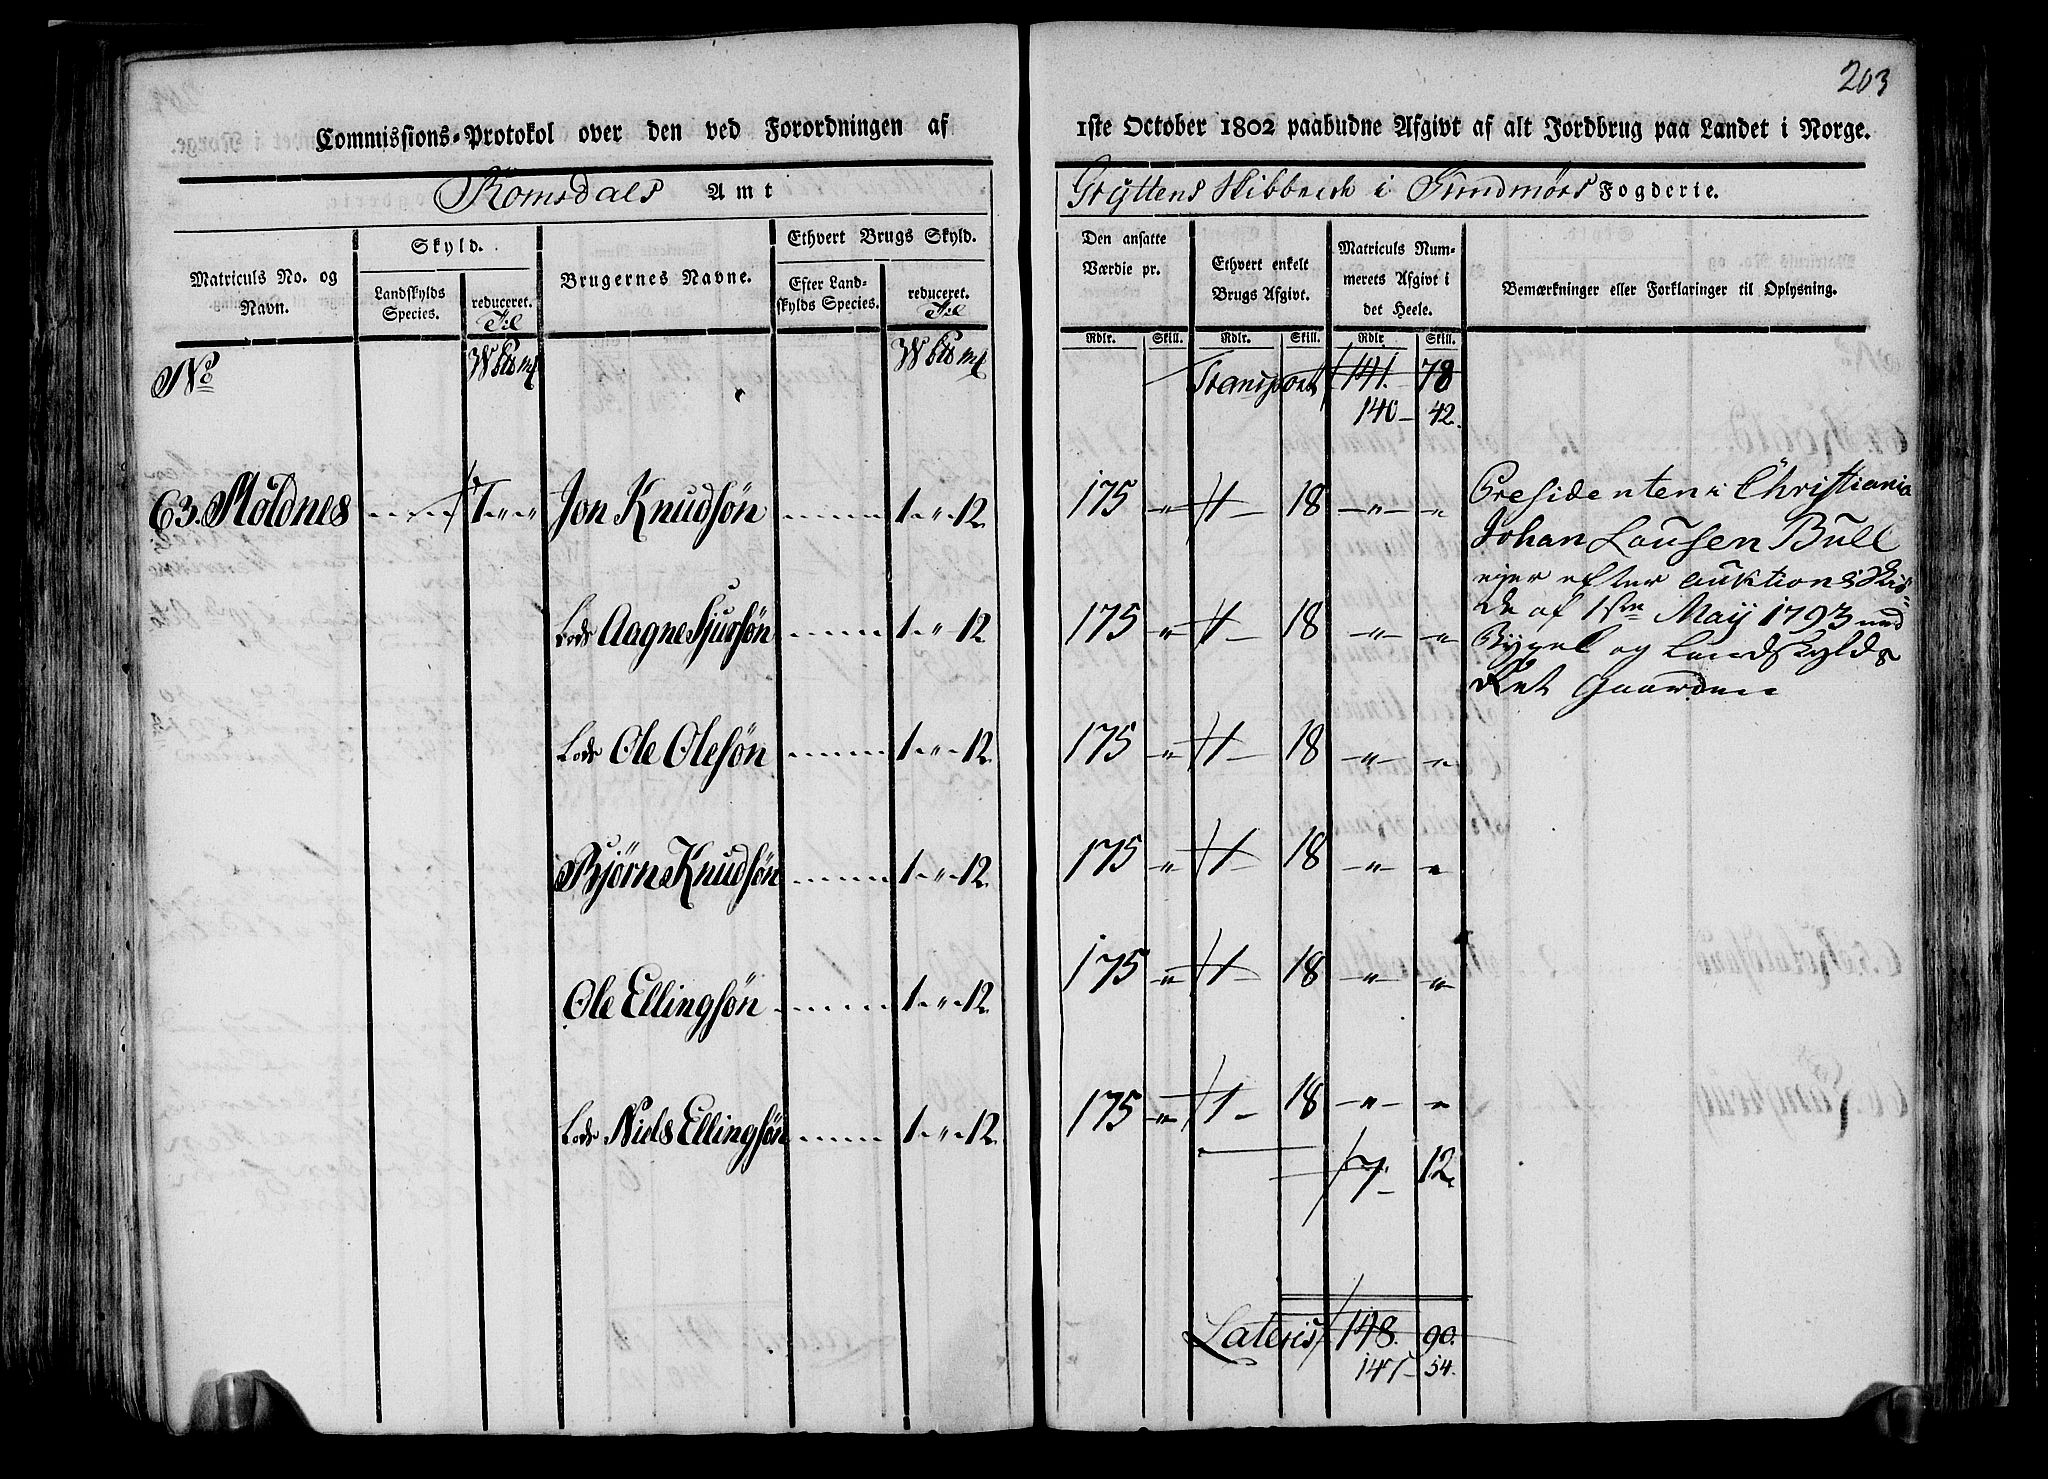 203
Commissions-Protokol over den ved Forordningen af 1ste October 1802 paabudne Afgivt af alt Jordbrug paa Landet i Norge.
Romsdals Amt
Gryttens Skibbrede i Sundmörs Fogderie.
Matriculs No. og Navn.
Skyld.
Landskylds Species.
reduceret.
Brugernes Navne.
Ethvert Brugs Skyld.
Efter Landskylds Species.
reduceret.
Den ansatte Værdie pr.
Ethvert enkelt Brugs Afgivt.
Matriculs Nummerets Afgivt i det Heele.
Bemærkninger eller Forklaringer til Oplysning.
Rdlr. Skill. Rdlr. Skill. Rdlr. Skill.
No W Pd mk W Pd mk
Transport 141. 78
140 - 42.
63. Moldnes 7 " " Jon Knudsøn 1 - " - 12 175 " 1 - 18 - " - "
Lods Aagne Sjursøn 1 - " - 12 175 " 1 - 18 - " - "
Lods Ole Olesøn 1 - " - 12 175 " 1 - 18 - " - "
Bjørn Knudsøn 1 - " - 12 175 " 1 - 18 - " - "
Ole Ellingsøn 1 - " - 12 175 " 1 - 18 - " - "
Lods Niels Ellingsøn 1 - " - 12 175 " 1 - 18 - " - "
7 - 12.
Presidenten i Christiania
Johan Lausen Bull
ejer efter auktions Skiö-
de af 1ste Maij 1793 med
Bygsel og Landskylds
Ret Gaarden
Lateris 148. 90.
147 - 54.